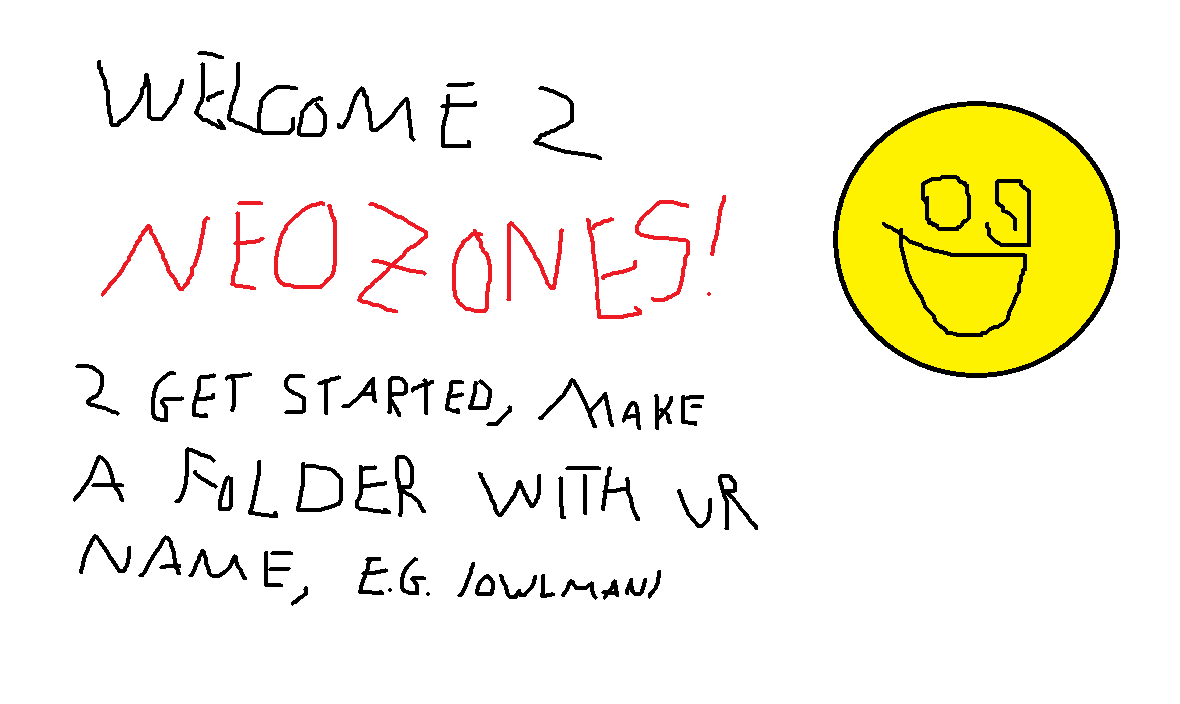 WELCOME 2
NEOZONES!
2 GET STARTED, MAKE
A FOLDER WITH UR
NAME, E.G. /OWLMAN/